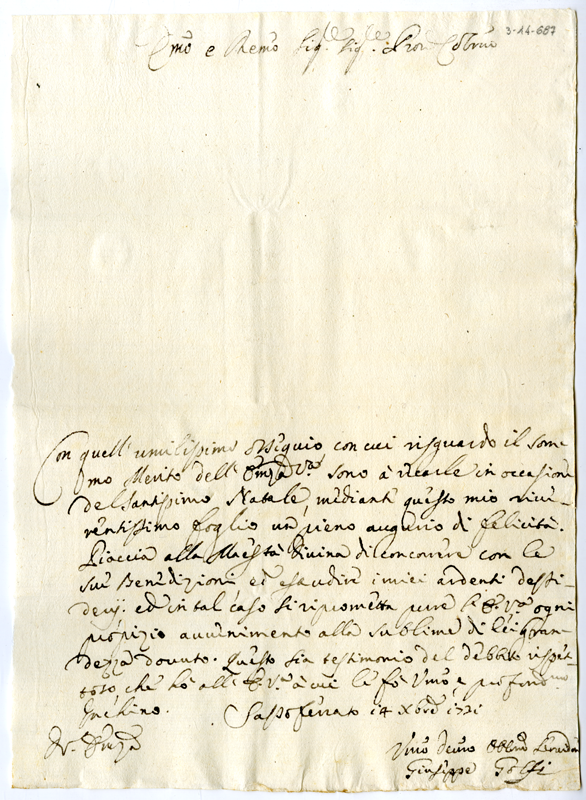 3-14-687
Emo e Remo Sig.re Sig.re Pron Colmo
Con quell'umilissimo ossequio con cui risguardo il som-
mo Merito dell'Emza Vra sono à recarle in occasione
del Santissimo Natale mediante questo mio rive-
rentissimo foglio un pieno augurio di felicità.
Piaccia alla Maestà Divina di concorrere con le
sue Benedizioni ed esaudire i miei ardenti desi-
derij: ed in tal caso si riprometta pure l'E. Va ogni
propizio avvenimento alla sublime di lei gran-
dezza dovuto. Questo sia testimonio del debbito rispet-
toso che hò all'E. Va à cui le fò Umo, e profondmo
Inchino. Sassoferrato 14 Xbre 1721
Vra Emza
Umo Devmo Obblmo Servid
Giuseppe